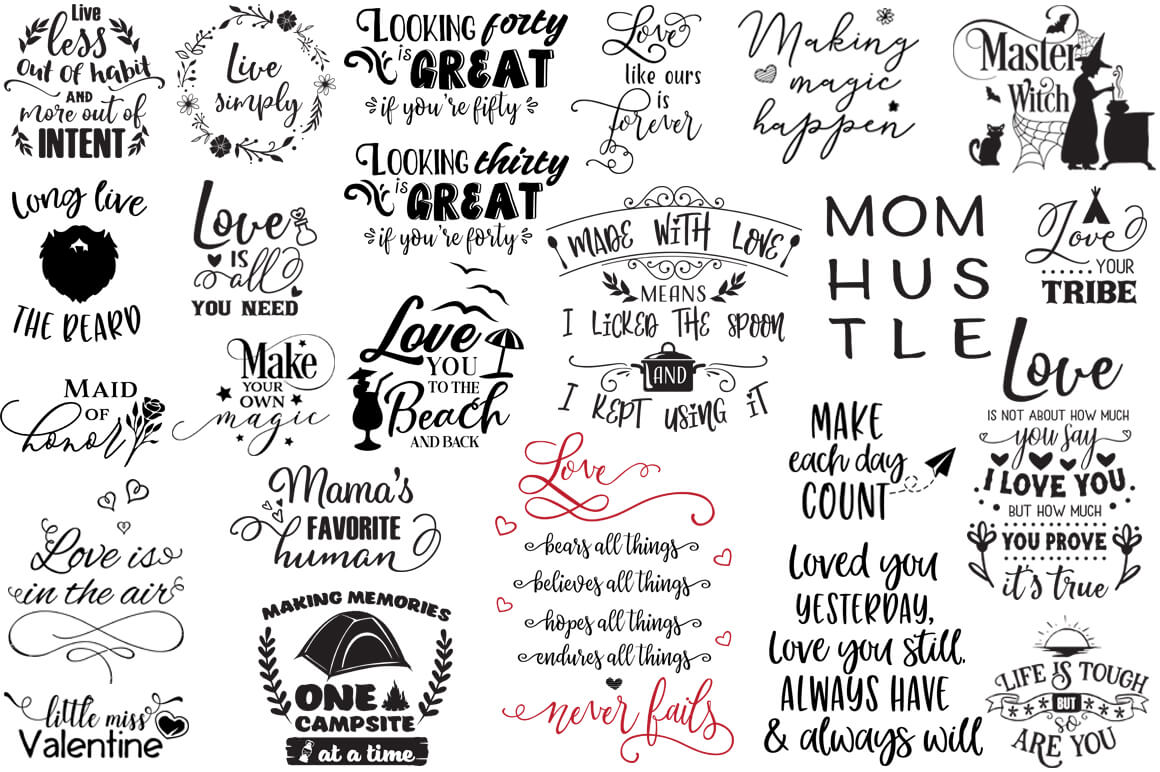 Live
less
Out of habit
AND
more out of
INTENT
Live
simply
LOOKING forty
is
GREAT
if you're fifty
Love
like ours
is
Forever
Making
magic
happen
Master
Witch
Long live
THE BEARD
Love
IS
all
YOU NEED
LOOKING thirty
is
GREAT
if you're forty
MADE WITH LOVE
MEANS
I LICKED THE SPOON
AND
I KEPT USING IT
MOM
HUS
TLE
Love
YOUR
TRIBE
MAID
OF
honor
Make
YOUR
OWN
magic
Love
YOU
TO THE
Beach
AND BACK
MAKE
each day
COUNT
Love
IS NOT ABOUT HOW MUCH
you say
I LOVE YOU
BUT HOW MUCH
YOU PROVE
it's true
Love is
in the air
Mama's
FAVORITE
human
Love
bears all things
believes all things
hopes all things
endures all things
never fails
Loved you
YESTERDAY,
Love you still.
ALWAYS HAVE
& always will
little miss
Valentine
MAKING MEMORIES
ONE
CAMPSITE
at a time
LIFE IS TOUGH
BUT
so
ARE YOU